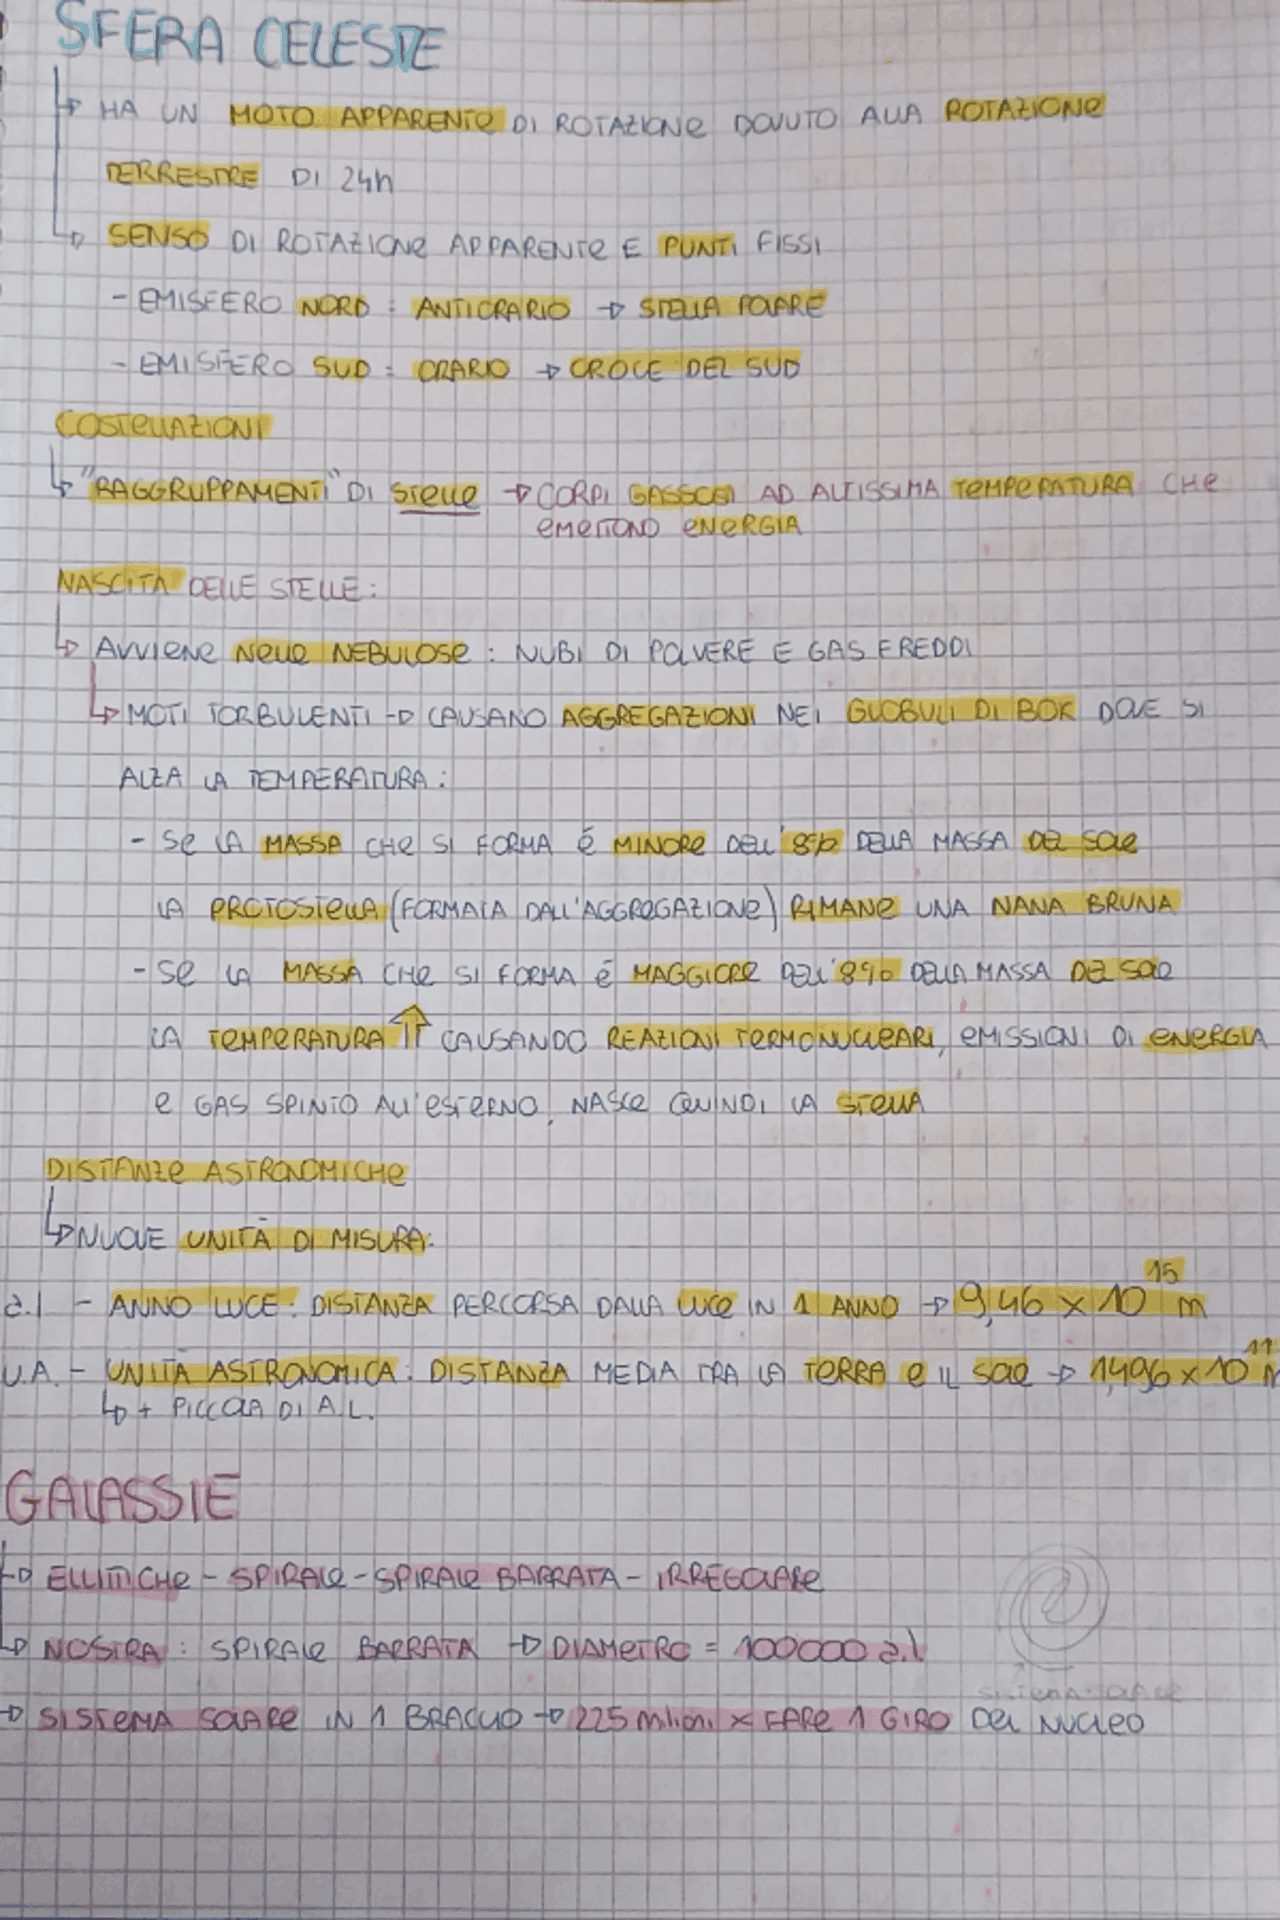 SFERA CELESTE
HA UN MOTO APPARENTE DI ROTAZIONE DOVUTO ALLA ROTAZIONE
TERRESTRE DI 24h
SENSO DI ROTAZIONE APPARENTE E PUNTI FISSI
- EMISFERO NORD : ANTIORARIO → STELLA POLARE
- EMISFERO SUD : ORARIO → CROCE DEL SUD
COSTELLAZIONI
↳ "RAGGRUPPAMENTI" DI STELLE → CORPI GASSOSI AD ALTISSIMA TEMPERATURA CHE
EMETTONO ENERGIA
NASCITA DELLE STELLE :
↳ AVVIENE NELLE NEBULOSE : NUBI DI POLVERE E GAS FREDDI
↳ MOTI TORBULENTI → CAUSANO AGGREGAZIONI NEI GLOBULI DI BOK DOVE SI
ALZA LA TEMPERATURA :
- SE LA MASSA CHE SI FORMA É MINORE DELL'8% DELLA MASSA DEL SOLE
LA PROTOSTELLA (FORMATA DALL'AGGREGAZIONE) RIMANE UNA NANA BRUNA
- SE LA MASSA CHE SI FORMA É MAGGIORE DELL'8% DELLA MASSA DEL SOLE
LA TEMPERATURA ⇑ CAUSANDO REAZIONI TERMONUCLEARI, EMISSIONI DI ENERGIA
E GAS SPINTO ALL'ESTERNO, NASCE QUINDI LA STELLA
DISTANZE ASTRONOMICHE
↳ NUOVE UNITÀ DI MISURA:
a.l - ANNO LUCE : DISTANZA PERCORSA DALLA LUCE IN 1 ANNO → 9,46 x 10¹⁵ m
U.A. - UNITÀ ASTRONOMICA : DISTANZA MEDIA TRA LA TERRA E IL SOLE → 1,496 x 10¹¹ m
↳ + PICCOLA DI A.L.
GALASSIE
→ ELLITTICHE - SPIRALE - SPIRALE BARRATA - IRREGOLARE
→ NOSTRA : SPIRALE BARRATA → DIAMETRO = 100000 a.l
SISTEMA SOLARE
→ SISTEMA SOLARE IN 1 BRACCIO → 225 milioni x FARE 1 GIRO DEL NUCLEO